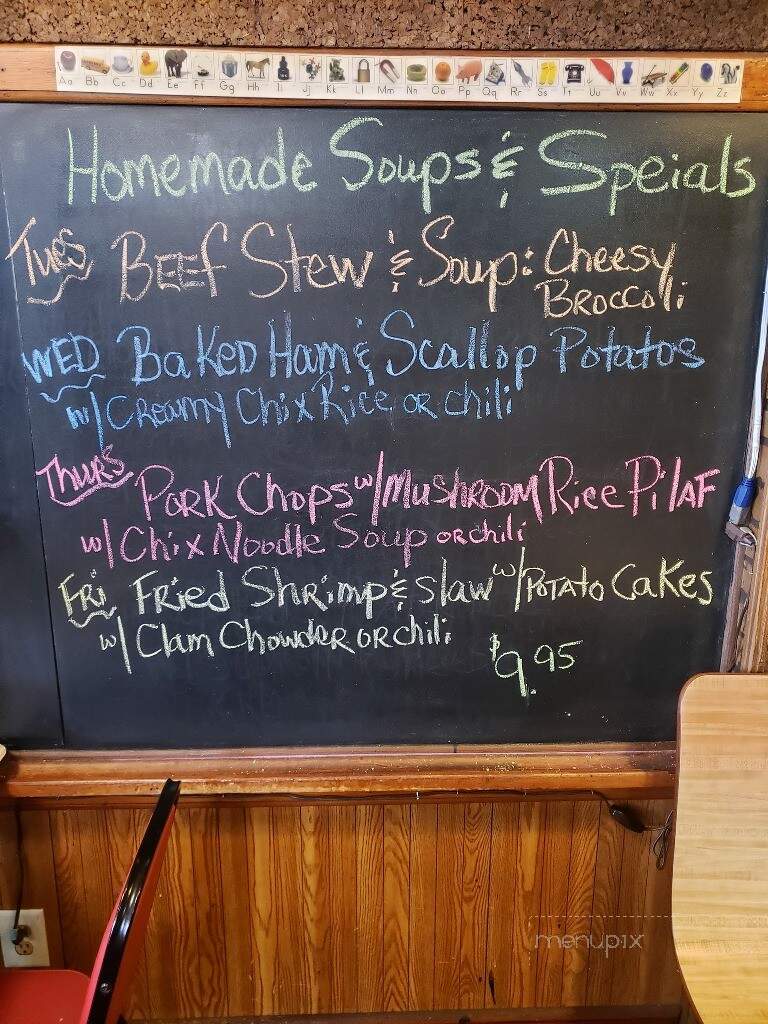 Aa Bb Cc Dd Ee Ff Gg Hh Ii Jj Kk Ll Mm Nn Oo Pp Qq Rr Ss Tt Uu Vv Ww Xx Yy Zz
Homemade Soups & Speials
Tues Beef Stew & Soup: Cheesy
Broccoli
WED Baked Ham & Scallop Potatos
w/ Creamy Chix Rice or chili
Thurs Pork Chops w/ Mushroom Rice Pilaf
w/ Chix Noodle Soup or chili
Fri Fried Shrimp & slaw w/ Potato Cakes
w/ Clam Chowder or chili
$9.95
menupix